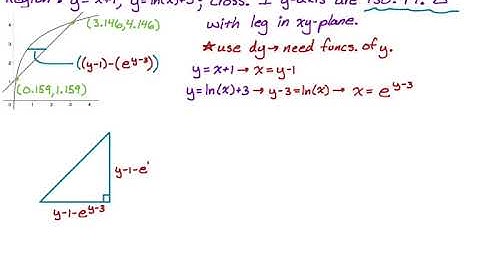 Region: y=x+1, y=ln(x)+3; cross. ⊥ y-axis are iso. rt. △
with leg in xy-plane.
★use dy→need funcs. of y.
(3.146, 4.146)
((y-1)-(e^{y-3}))
(0.159, 1.159)
y=x+1→x=y-1
y=ln(x)+3→y-3=ln(x)→ x= e^{y-3}
y-1-e^{'}
y-1-e^{y-3}